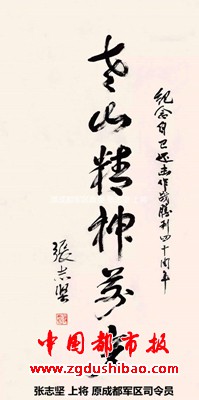 纪念自卫还击作战勝利四十周年
老山精神萬
張志堅
中国都市报
www.zgdushibao.com
张志坚 上将 原成都军区司令员